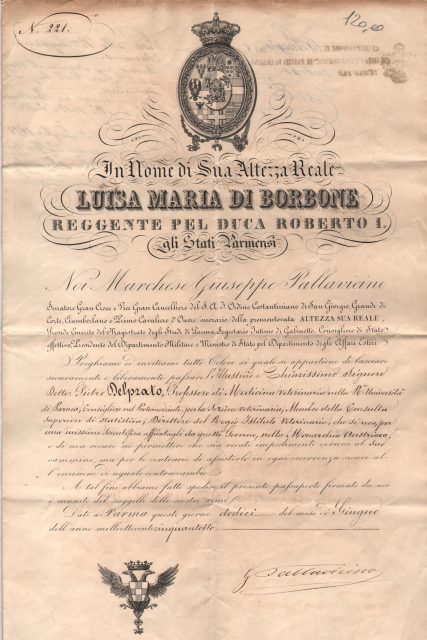 N. 221.
120,00
In Nome di Sua Altezza Reale
LUISA MARIA DI BORBONE
REGGENTE PEL DUCA ROBERTO I.
gli Stati Parmensi
Noi Marchese Giuseppe Pallavicino
Senatore Gran Croce e Gran Cancelliere del S. A. I. Ordine Costantiniano di San Giorgio, Grande di
Corte, Ciamberlano e Primo Cavaliere d'Onore onorario della prementovata ALTEZZA SUA REALE,
Preside Emerito del Magistrato degli Studi di Parma, Segretario Intimo di Gabinetto, Consigliere di Stato
effettivo, Presidente del Dipartimento Militare e Ministro di Stato pel Dipartimento degli Affari Esteri
Preghiamo ed invitiamo tutti Coloro ai quali si appartiene di lasciare
sicuramente e liberamente passare l'Illustre e Chiarissimo Signore
Dottor Pietro Delprato, Professore di Medicina Veterinaria nella R. Università
di Parma, Consigliere nel Protomedicato, per la Sezione veterinaria, Membro della Consulta
superiore di statistica, Direttore del Regio Istituto Veterinario, che si reca per
una missione scientifica affidatagli da questo Governo, nella Monarchia Austriaca,
e di non recare nè permettere che sia recato impedimento veruno al suo
cammino, ma per lo contrario di assisterlo in ogni occorrenza sicuri al-
l'occasione di eguale contraccambio.
A tal fine abbiamo fatto spedire il presente passaporto firmato da noi
e munito del suggello delle nostre armi.
Dato a Parma questo giorno dodici del mese di Giugno
dell'anno milleottocentocinquantotto.
G Pallavicino